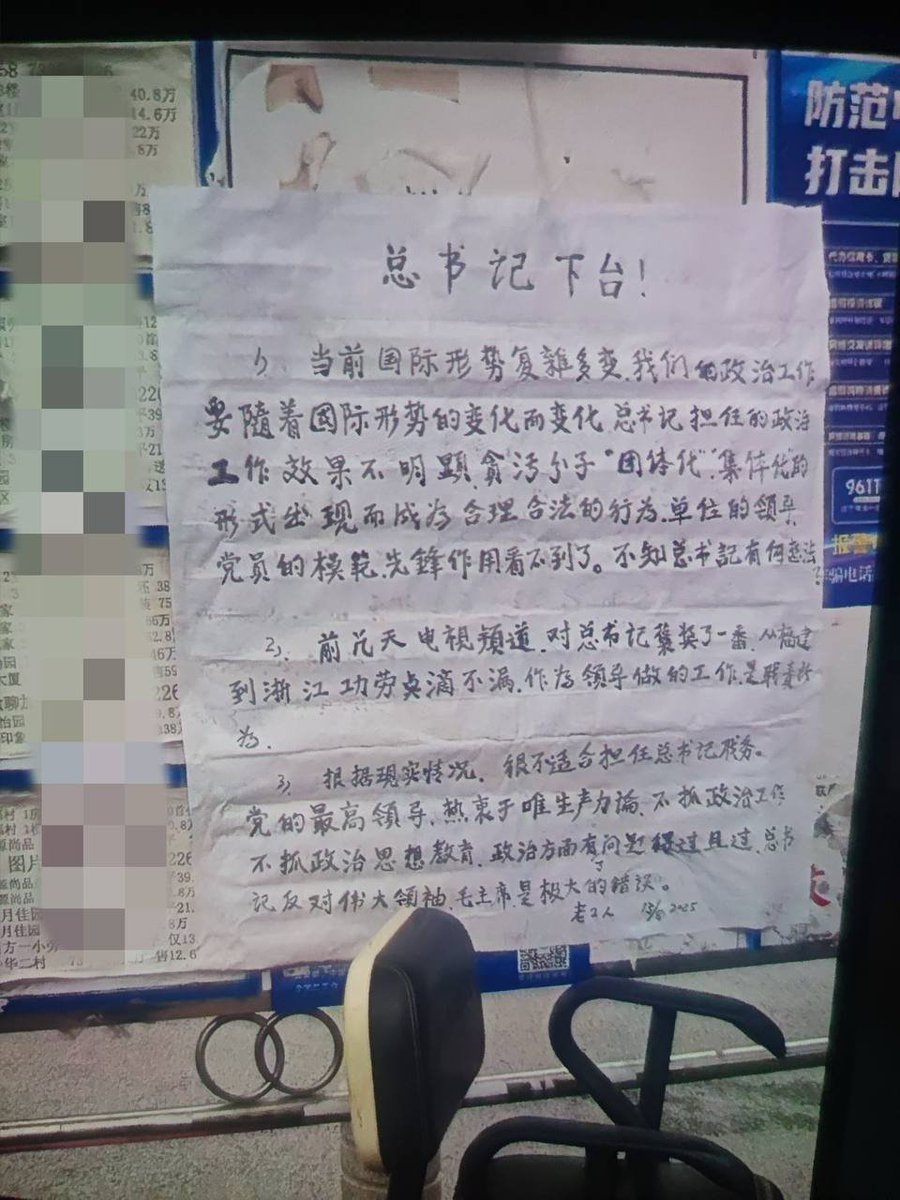 总书记下台！
1、当前国际形势复雜多变，我们的政治工作
要随着国际形势的变化而变化，总书记担任的政治
工作效果不明顯，贪污分子“团体化”，集体化的
形式出现而成为合理合法的行为，单位的领导，
党员的模范先锋作用看不到了。不知总书記有何想法？
2、前几天电视频道，对总书记褒奖了一番，从福建
到浙江功劳点滴不漏，作为领导做的工作是职责所
为，
3、根据现实情况，很不适合担任总书记职务。
党的最高领导，热衷于唯生产力論，不抓政治工作
不抓政治思想教育，政治方面有了问题得过且过，总书
记反对伟大领袖毛主席是极大的错误。
老工人 13/6 2025
防范
打击
9611
报警
骗电话
40.8万
4.6万
22万
图片
大厦
怡园
印象
月佳园
月佳园
方一小旁
华二村
仅13
售12.6